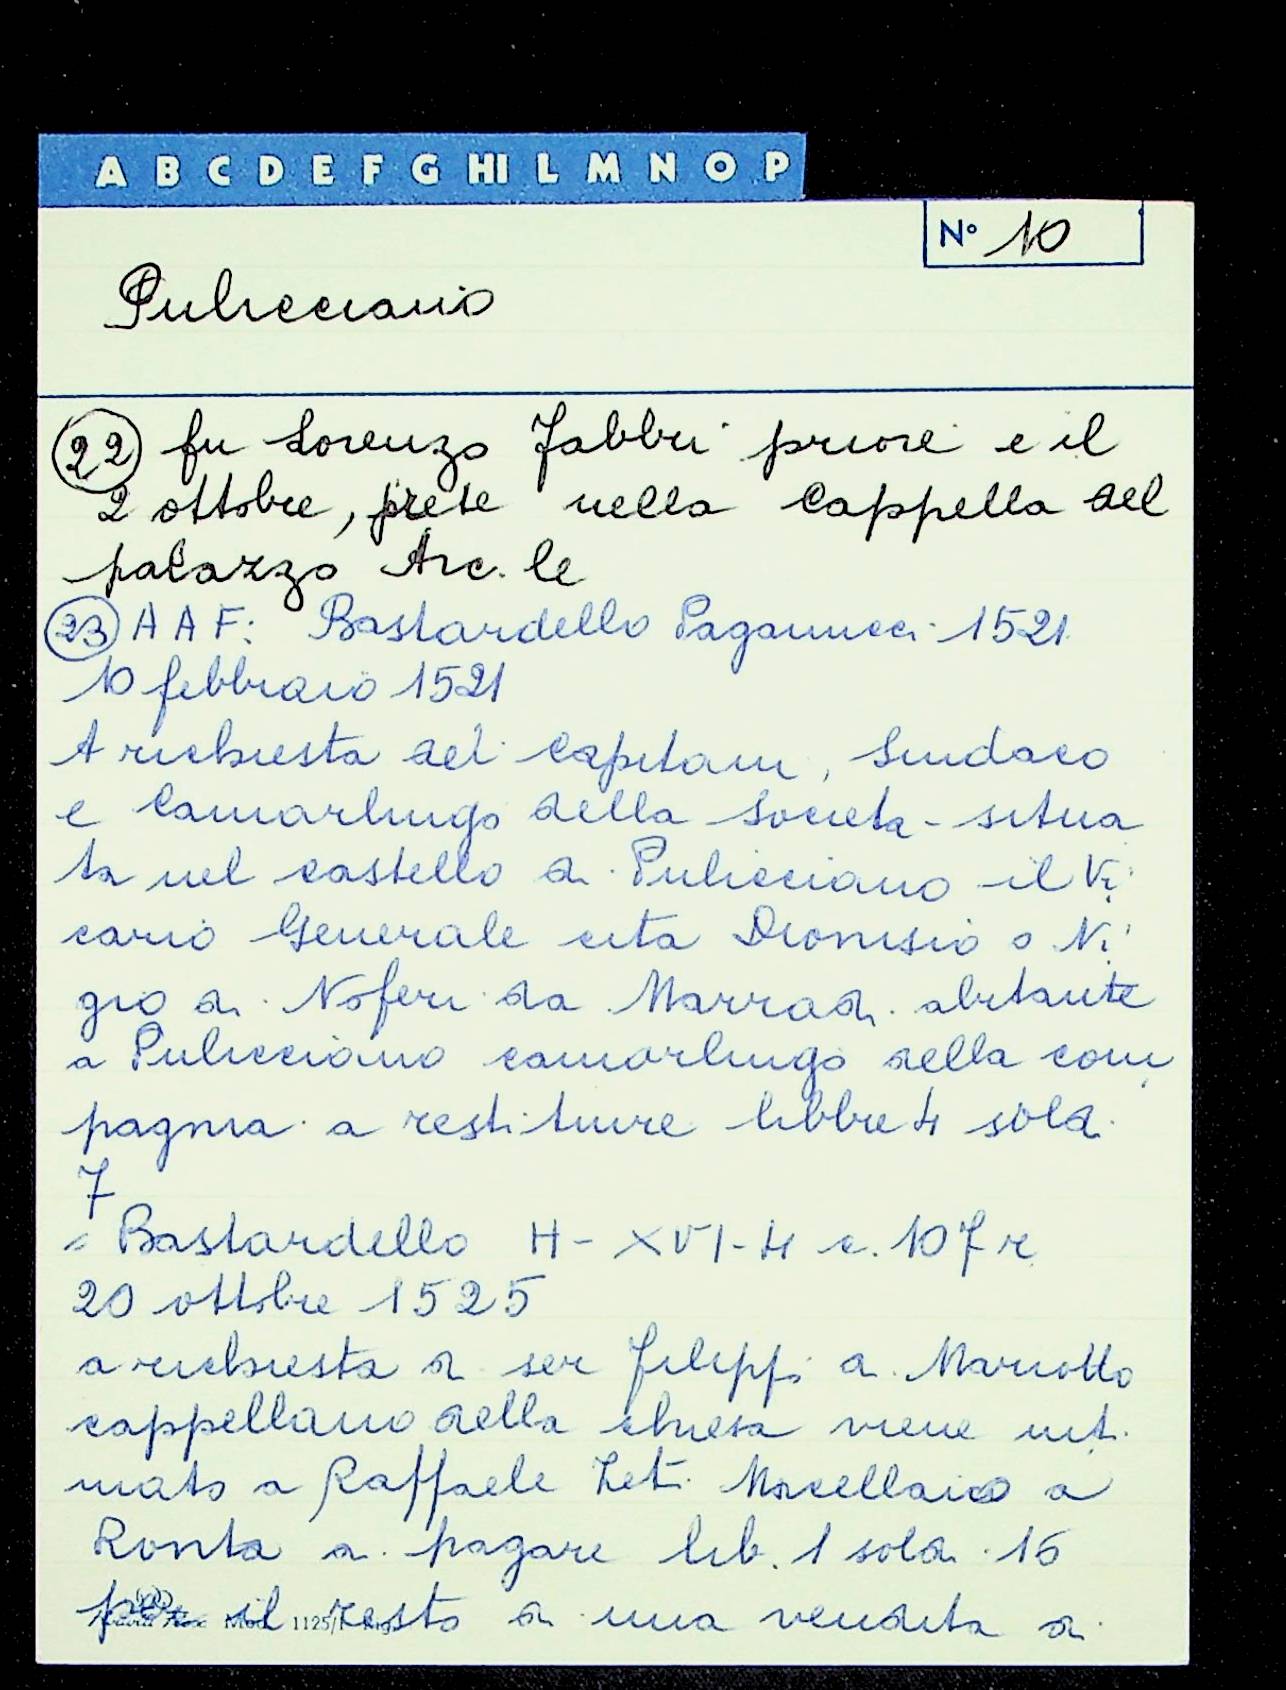 A B C D E F G HI L M N O P
N° 10
Pulicciano
22 fu Lorenzo Fabbri priore e il
2 ottobre, prete nella Cappella del
palazzo Arc.le
23 A A F: Bastardello Paganucci 1521
10 febbraio 1521
A richiesta dei Capitani, Sindaco
e Camarlingo della Societa - situa
ta nel castello di Pulicciano il Vi
cario Generale cita Dionisio o Ni
gio di Noferi da Marradi abitante
a Pulicciano camarlingo della com
pagnia a restituire libbre 4 soldi
7
Bastardello H - XVI - 4 c. 107 r
20 ottobre 1525
a richiesta di ser Filippi di Mariotto
cappellano della chiesa viene inti
mato a Raffaele Macellaio a
Ronta di pagare lib. 1 soldi 16
per il resto di una vendita di
1125/